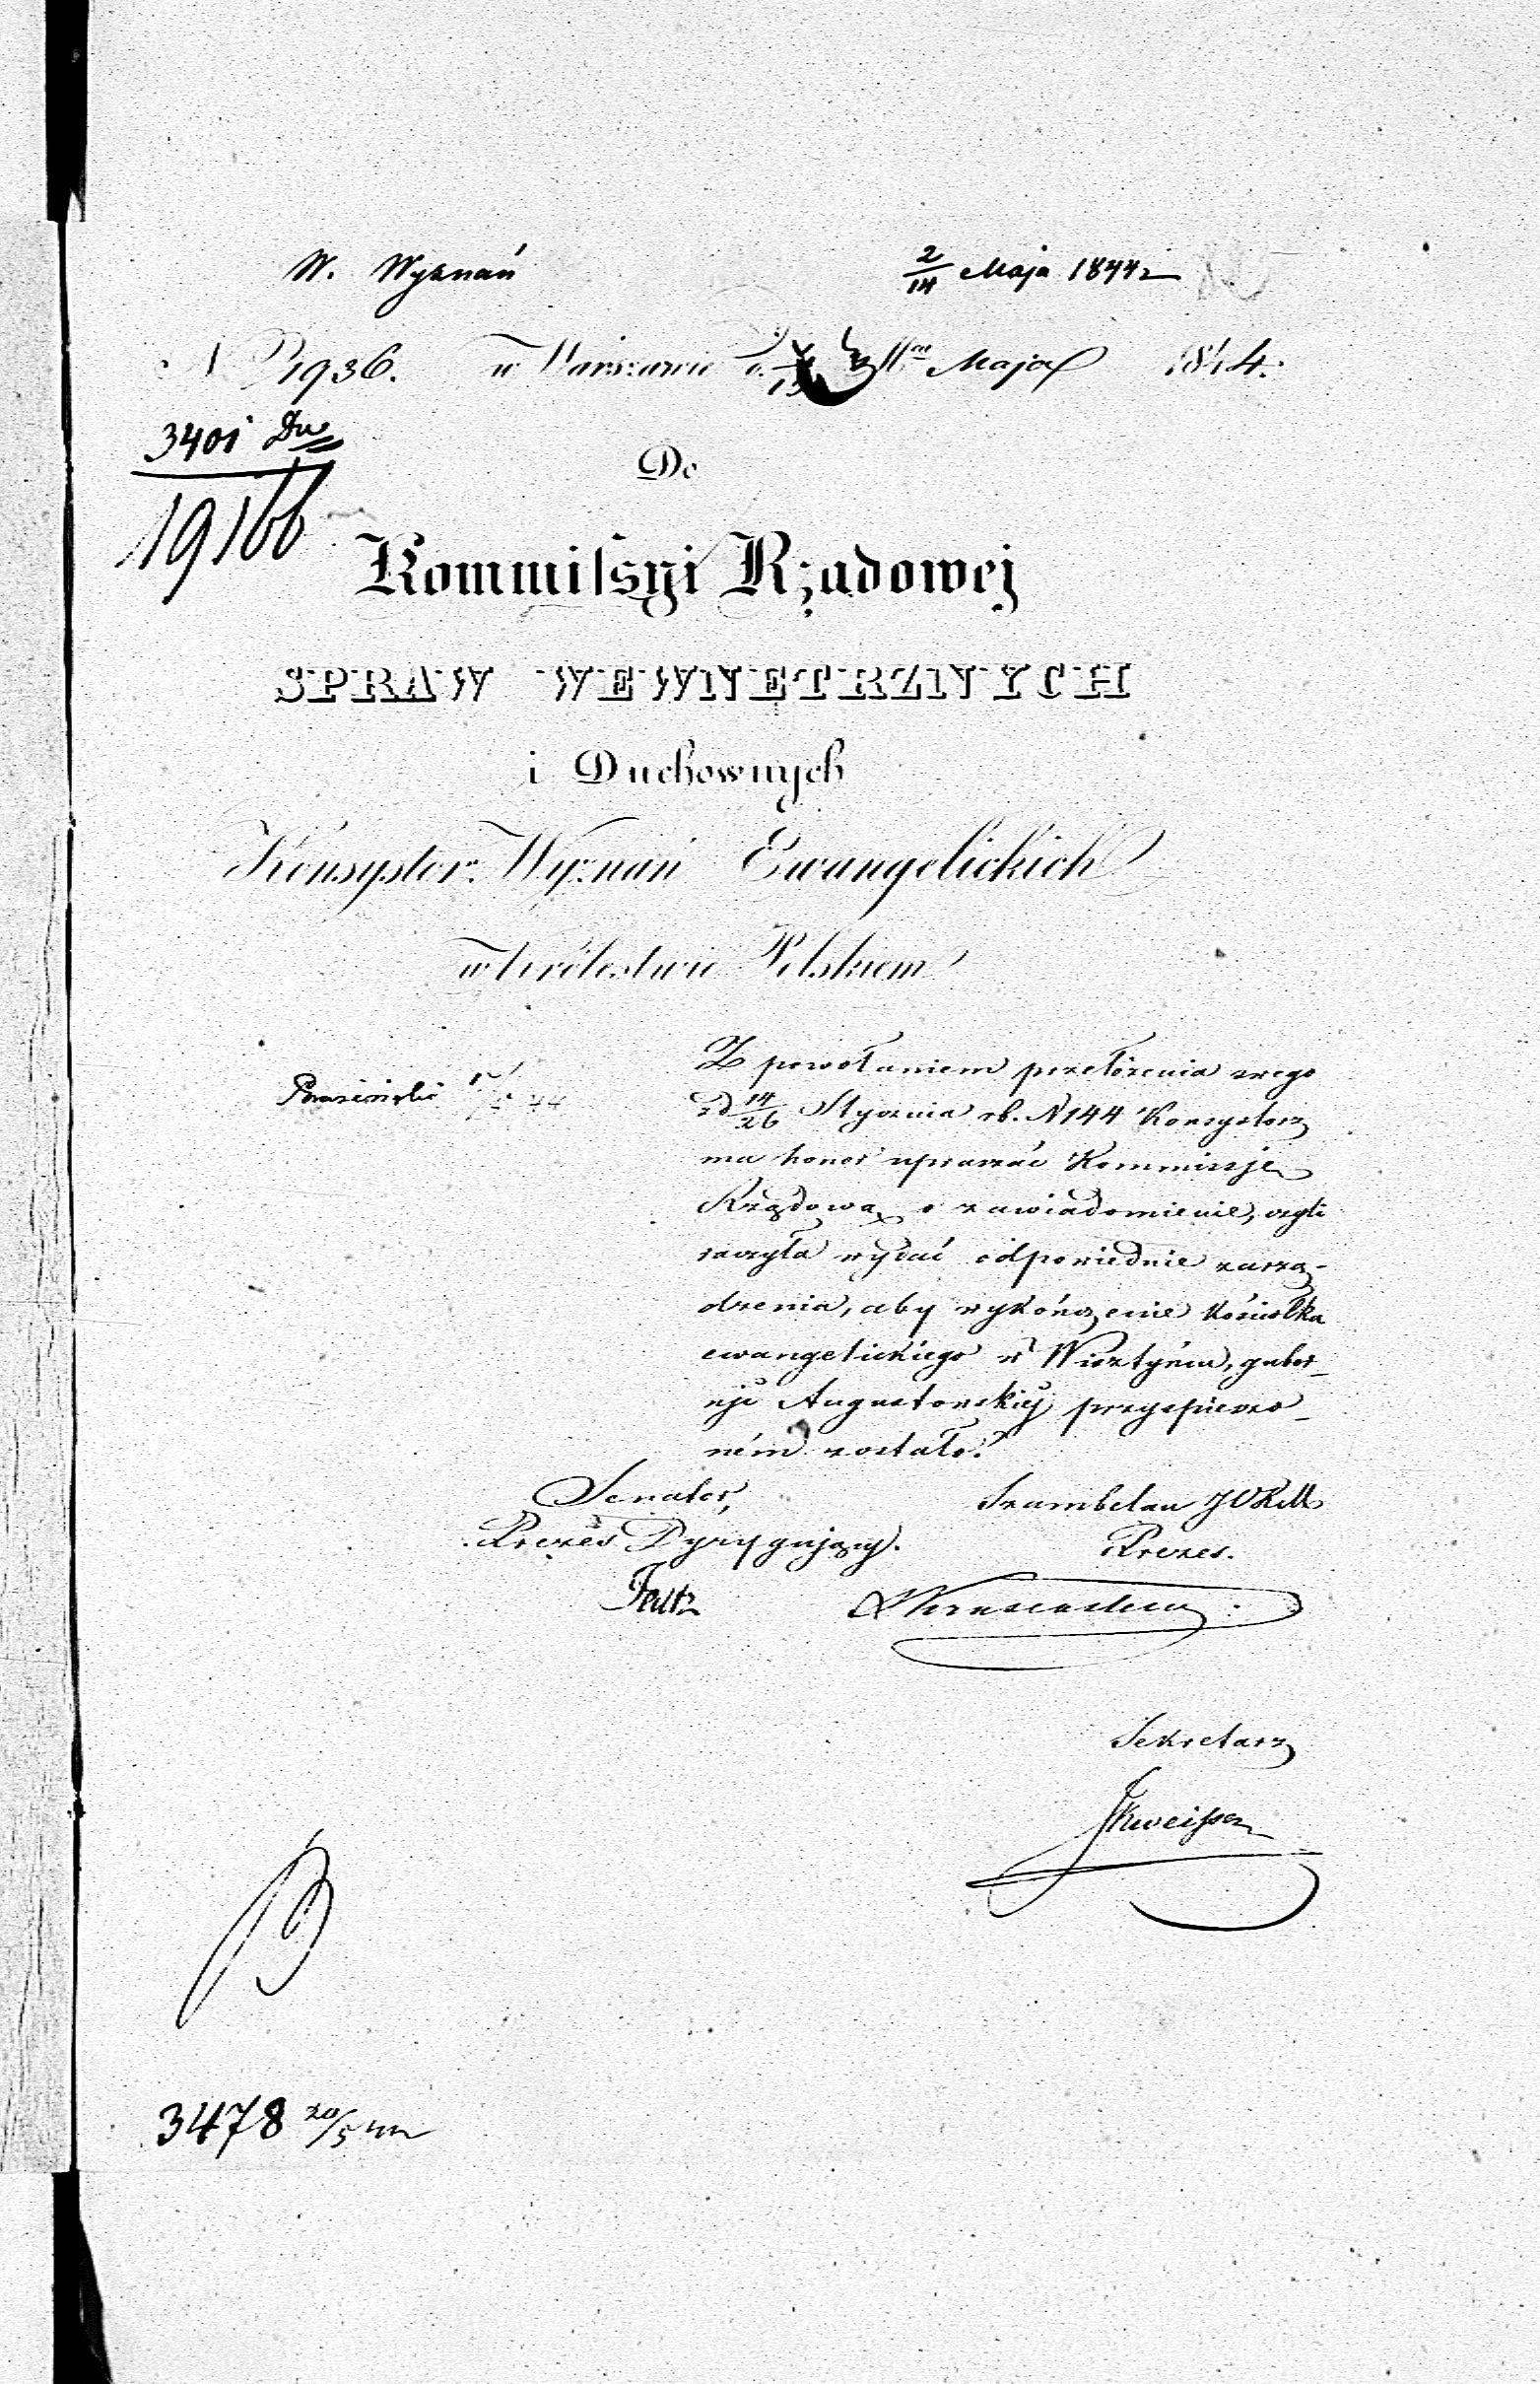 W. Wyznań
2/14 Maja 1844 r
N 1936. w Warszawie d. Maja 1844.
3401 Du
19166
Do
Kommissyi Rządowej
SPRAW WEWNĘTRZNYCH
i Duchownych
Konsystorz Wyznań Ewangelickich
w Królestwie Polskiem
Z powołaniem przełożenia swego
z d 14/26 Stycznia rb. N 144 Konsystorz
ma honor upraszać Kommissję
Rządową o zawiadomienie, czyli
raczyła wydać odpowiednie zarzą-
dzenia, aby wykończenie kościołka
ewangelickiego w Wisztyńcu, guber-
nji Augustowskiej przyspieszo-
ném zostało.
Senator, Szambelan JCKM
Prezes Dyrygujący. Prezes.
Sekretarz
3478 20/5 44